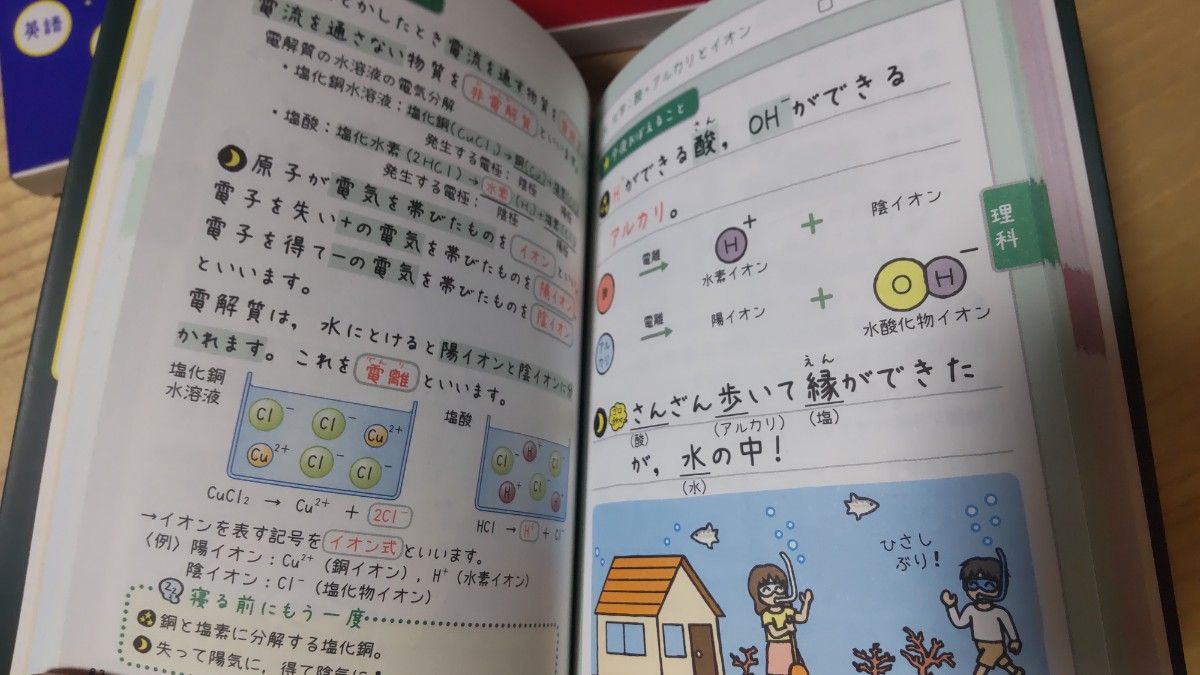 英語
とかしたとき電流を通す物質を
電流を通さない物質を非電解質といいます。
電解質の水溶液の電気分解
・塩化銅水溶液：塩化銅(CuCl₂)→銅(Cu)＋塩素
発生する電極： 陰極 陽極
・塩酸：塩化水素(2HCl)→水素(H₂)＋塩素
発生する電極： 陰極 陽極
原子が電気を帯びたものをイオンといい
電子を失い＋の電気を帯びたものを陽イオン
電子を得て－の電気を帯びたものを陰イオン
といいます。
電解質は，水にとけると陽イオンと陰イオンに分
かれます。これを電離といいます。
でんり
塩化銅
水溶液
Cl⁻ Cl⁻ Cu²⁺
Cu²⁺ Cl⁻ Cl⁻
CuCl₂ → Cu²⁺ + 2Cl⁻
塩酸
Cl⁻ H⁺ Cl⁻
H⁺ Cl⁻
HCl → H⁺ + Cl⁻
→イオンを表す記号をイオン式といいます。
（例）陽イオン：Cu²⁺（銅イオン），H⁺（水素イオン）
陰イオン：Cl⁻（塩化物イオン）
zzz
寝る前にもう一度
銅と塩素に分解する塩化銅。
失って陽気に，得て陰気に！
酸・アルカリとイオン
今夜おぼえること
さん
H⁺ができる酸，OH⁻ができる
アルカリ。
酸 電離→ H⁺ 水素イオン ＋ 陰イオン
アルカリ 電離→ 陽イオン ＋ OH⁻ 水酸化物イオン
理科
えん
ゴロ合わせ さんざん歩いて縁ができた
(酸) (アルカリ) (塩)
が，水の中！
(水)
ひさし
ぶり！